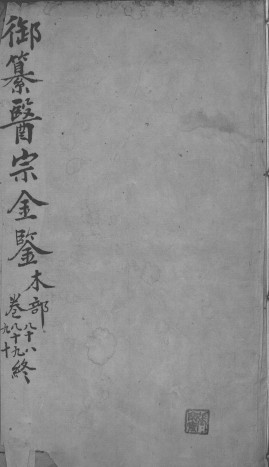 御纂醫宗金鍳
木部
卷八十八
八十九
九十
終